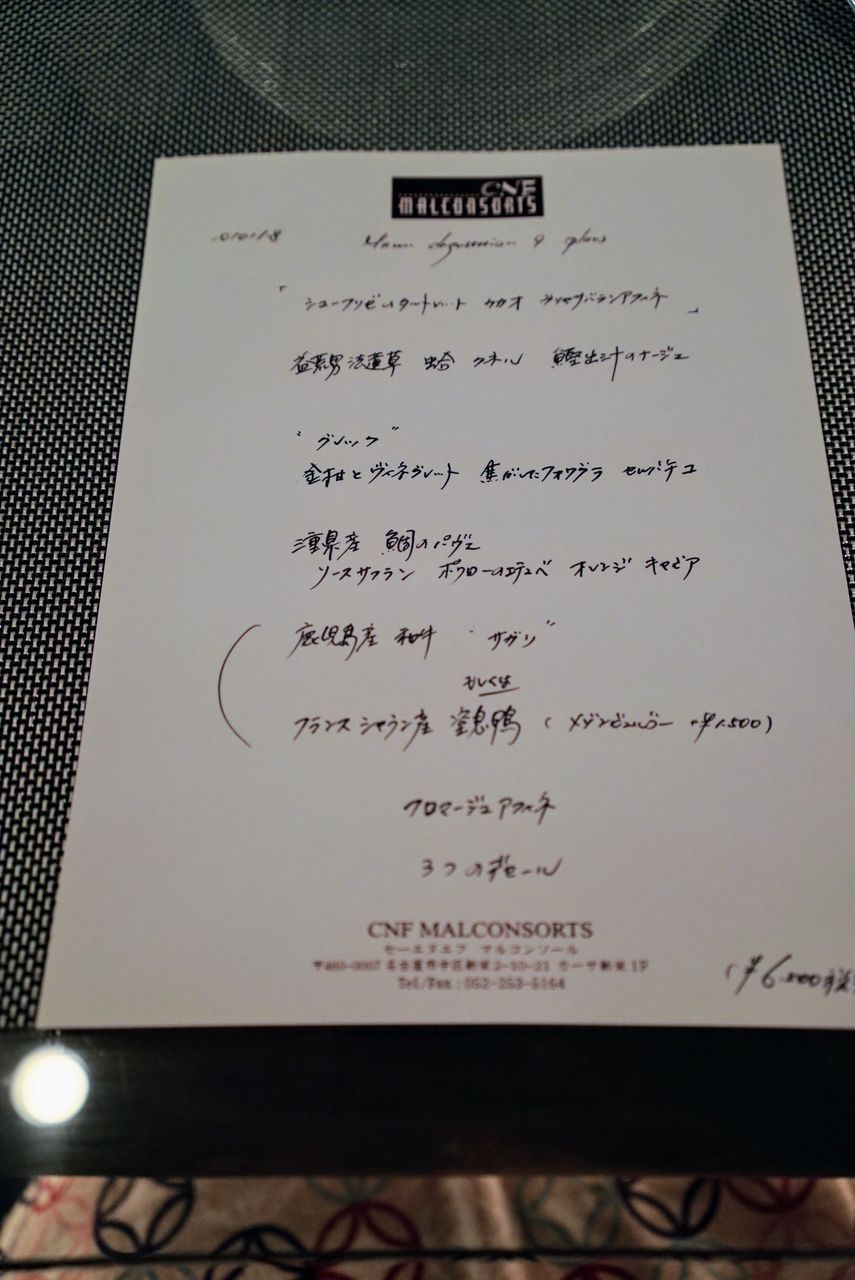 CNF
MALCONSORTS
Menu degustation 9 plats
「シューフリゼのタルトレット カカオ ブリヤサバランアフィネ」
益荒男法蓮草 蛤 クネル 鰹出汁のナージュ
"グレック"
金柑とヴィネグレット 焦がしたフォワグラ セルバチコ
三重県産 鯛のパヴェ
ソースサフラン ポワローのエチュベ オレンジ キャビア
鹿児島産 和牛 "サガリ"
もしくは
フランス シャラン産 窒息鴨 ( メゾンビュルゴー +¥1,500)
フロマージュアフィネ
3つのデセール
CNF MALCONSORTS
セーエヌエフ マルコンソール
〒460-0007 名古屋市中区新栄2-10-21 カーサ新栄 1F
Tel/Fax : 052-253-5164
(¥6,500税